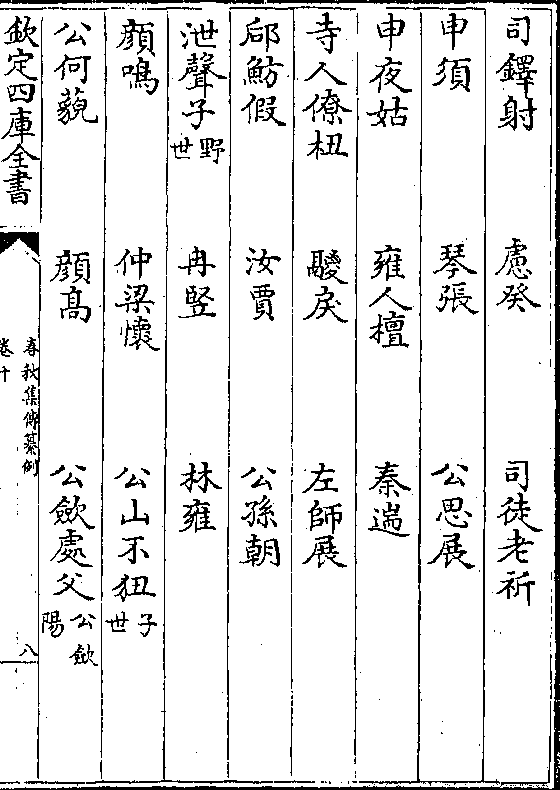 司鐸射 慮癸 司徒老祈
申須 琴張 公思展
申夜姑 雍人檀 秦遄
寺人僚柤 鬷戾 左師展
郈魴假 汝賈 公孫朝
泄聲子野世 冉竪 林雍
顔鳴 仲梁懷 公山不狃子世
公何藐 顔髙 公斂處父公斂陽
欽定四庫全書 春秋集傳纂例 卷十 八